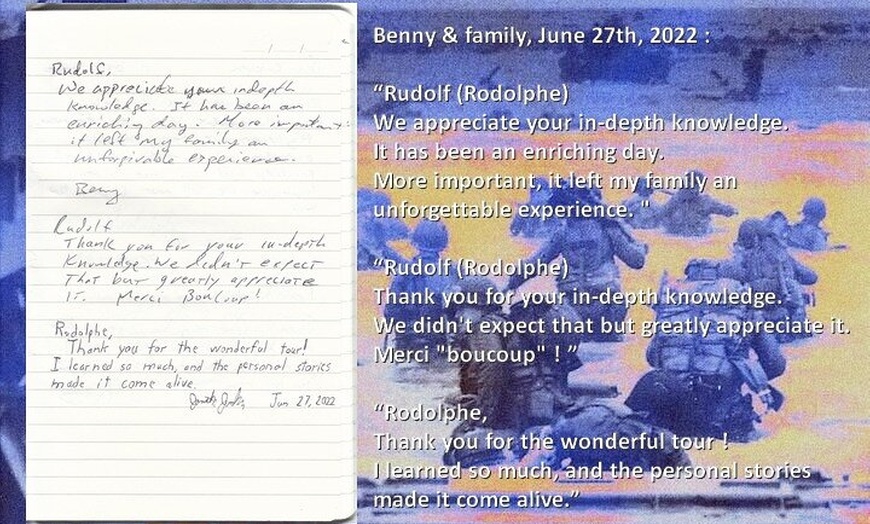 Rudolf,
We appreciate your indepth
knowledge. It has been an
enriching day. More important:
it left my family an
unforgivable experience.
Benny
Rudolf
Thank you for your in-depth
Knowledge. We didn't expect
That but greatly appreciate
it. Merci Boucoup!
Rodolphe,
Thank you for the wonderful tour!
I learned so much, and the personal stories
made it come alive.
Jun 27, 2022
Benny & family, June 27th, 2022 :
“Rudolf (Rodolphe)
We appreciate your in-depth knowledge.
It has been an enriching day.
More important, it left my family an
unforgettable experience. "
“Rudolf (Rodolphe)
Thank you for your in-depth knowledge.
We didn't expect that but greatly appreciate it.
Merci "boucoup" ! ”
“Rodolphe,
Thank you for the wonderful tour !
I learned so much, and the personal stories
made it come alive.”